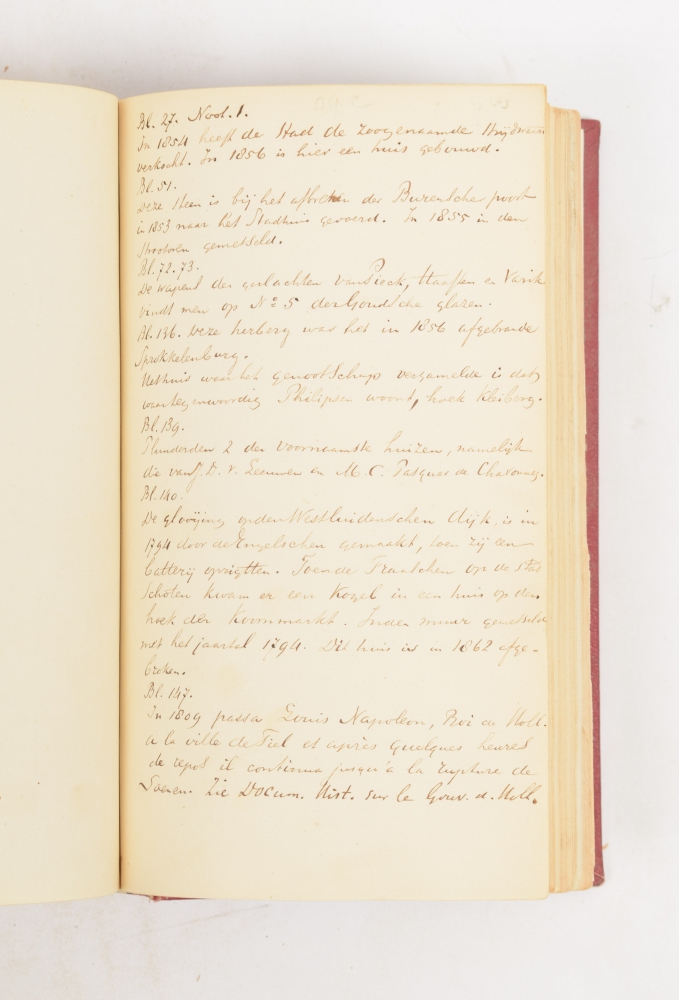 Bl. 27. Noot. 1.
In 1854 heeft de Stad de zoogenaamde
verkocht. In 1856 is hier een huis gebouwd.
Bl. 51.
Deze steen is bij het afbreken der Burensche poort
in 1853 naar het Stadhuis gevoerd. In 1855 in den
gemetseld.
Bl. 72. 73.
De wapens der geslachten van Pieck, Haaften en Varik
vindt men op No 5 der Goudsche glazen.
Bl. 136. Deze herberg was het in 1856 afgebrande
Sprokkelenburg.
Het huis waar het genootschap vergaderde is dat
waar tegenwoordig Philipsen woont, hoek Kleiberg.
Bl. 139.
Plunderden 2 der voornaamste huizen, namelijk
die van J. D. v. Leeuwen en M. C. Pasques de Chavonnes.
Bl. 140.
De glooijing op den Westluidenschen dijk, is in
1794 door de Engelschen gemaakt, toen zij een
batterij oprigtten. Toen de Franschen op de stad
schoten kwam er een kogel in een huis op den
hoek der Koornmarkt. In den muur gemetseld
met het jaartal 1794. Dit huis is in 1862 afge-
broken.
Bl. 147.
In 1809 passa Louis Napoleon, Roi de Holl.
a la ville de Tiel et après quelques heures
de repos il continua jusqu'à la rupture de
Loenen. Zie Docum. Hist. sur le Gouv. d. Holl.